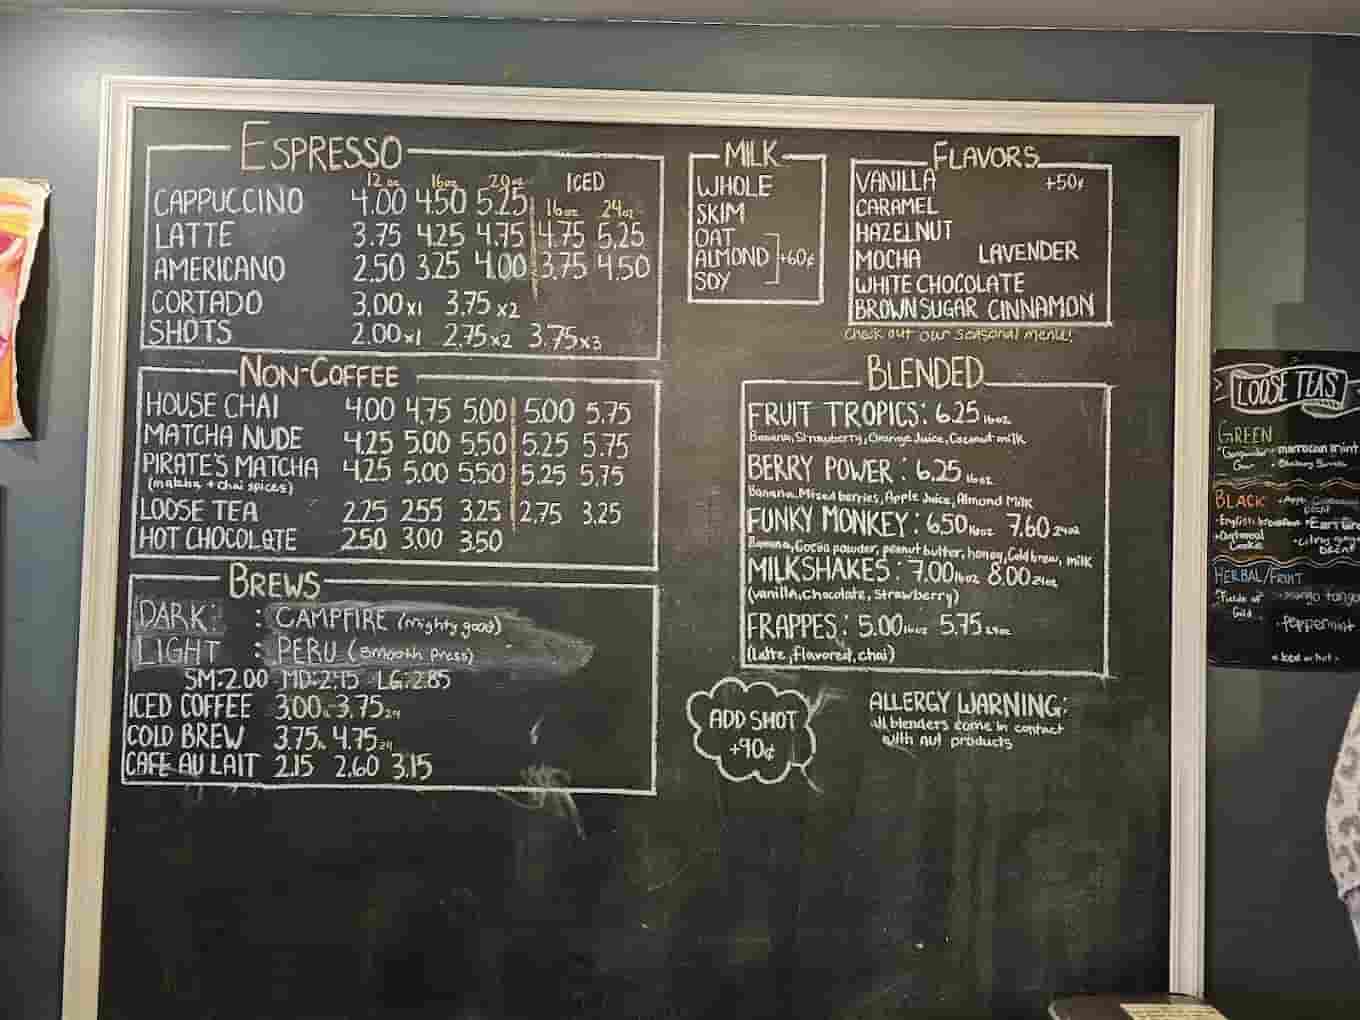 ESPRESSO
12 oz 16oz 20oz ICED
CAPPUCCINO 4.00 4.50 5.25 16oz 24oz
LATTE 3.75 4.25 4.75 4.75 5.25
AMERICANO 2.50 3.25 4.00 3.75 4.50
CORTADO 3.00 x1 3.75 x2
SHOTS 2.00 x1 2.75 x2 3.75 x3
NON-COFFEE
HOUSE CHAI 4.00 4.75 5.00 5.00 5.75
MATCHA NUDE 4.25 5.00 5.50 5.25 5.75
PIRATE'S MATCHA 4.25 5.00 5.50 5.25 5.75
(matcha + chai spices)
LOOSE TEA 2.25 2.55 3.25 2.75 3.25
HOT CHOCOLATE 2.50 3.00 3.50
BREWS
DARK: : CAMPFIRE (mighty good)
LIGHT : PERU (smooth press)
SM:2.00 MD:2.45 LG:2.85
ICED COFFEE 3.00 3.75 24
COLD BREW 3.75 4.75 24
CAFE AU LAIT 2.15 2.60 3.15
MILK
WHOLE
SKIM
OAT
ALMOND +60¢
SOY
FLAVORS
VANILLA +50¢
CARAMEL
HAZELNUT
MOCHA LAVENDER
WHITE CHOCOLATE
BROWN SUGAR CINNAMON
Check out our seasonal menu!
BLENDED
FRUIT TROPICS: 6.25 16oz
Banana, Strawberry, Orange Juice, Coconut milk
BERRY POWER: 6.25 16oz
Banana, Mixed berries, Apple Juice, Almond Milk
FUNKY MONKEY: 6.50 16oz 7.60 24oz
Banana, Cocoa powder, peanut butter, honey, Cold brew, milk
MILKSHAKES: 7.00 16oz 8.00 24oz
(vanilla, Chocolate, Strawberry)
FRAPPES: 5.00 16oz 5.75 24oz
(latte, flavored, chai)
ADD SHOT
+90¢
ALLERGY WARNING:
all blenders come in contact
with nut products
LOOSE TEAS
GREEN
moroccan mint
BLACK
English breakfast Earl Gre
Oatmeal
Cookie
decaf
HERBAL/FRUIT
Fields of mango tango
Gold
peppermint